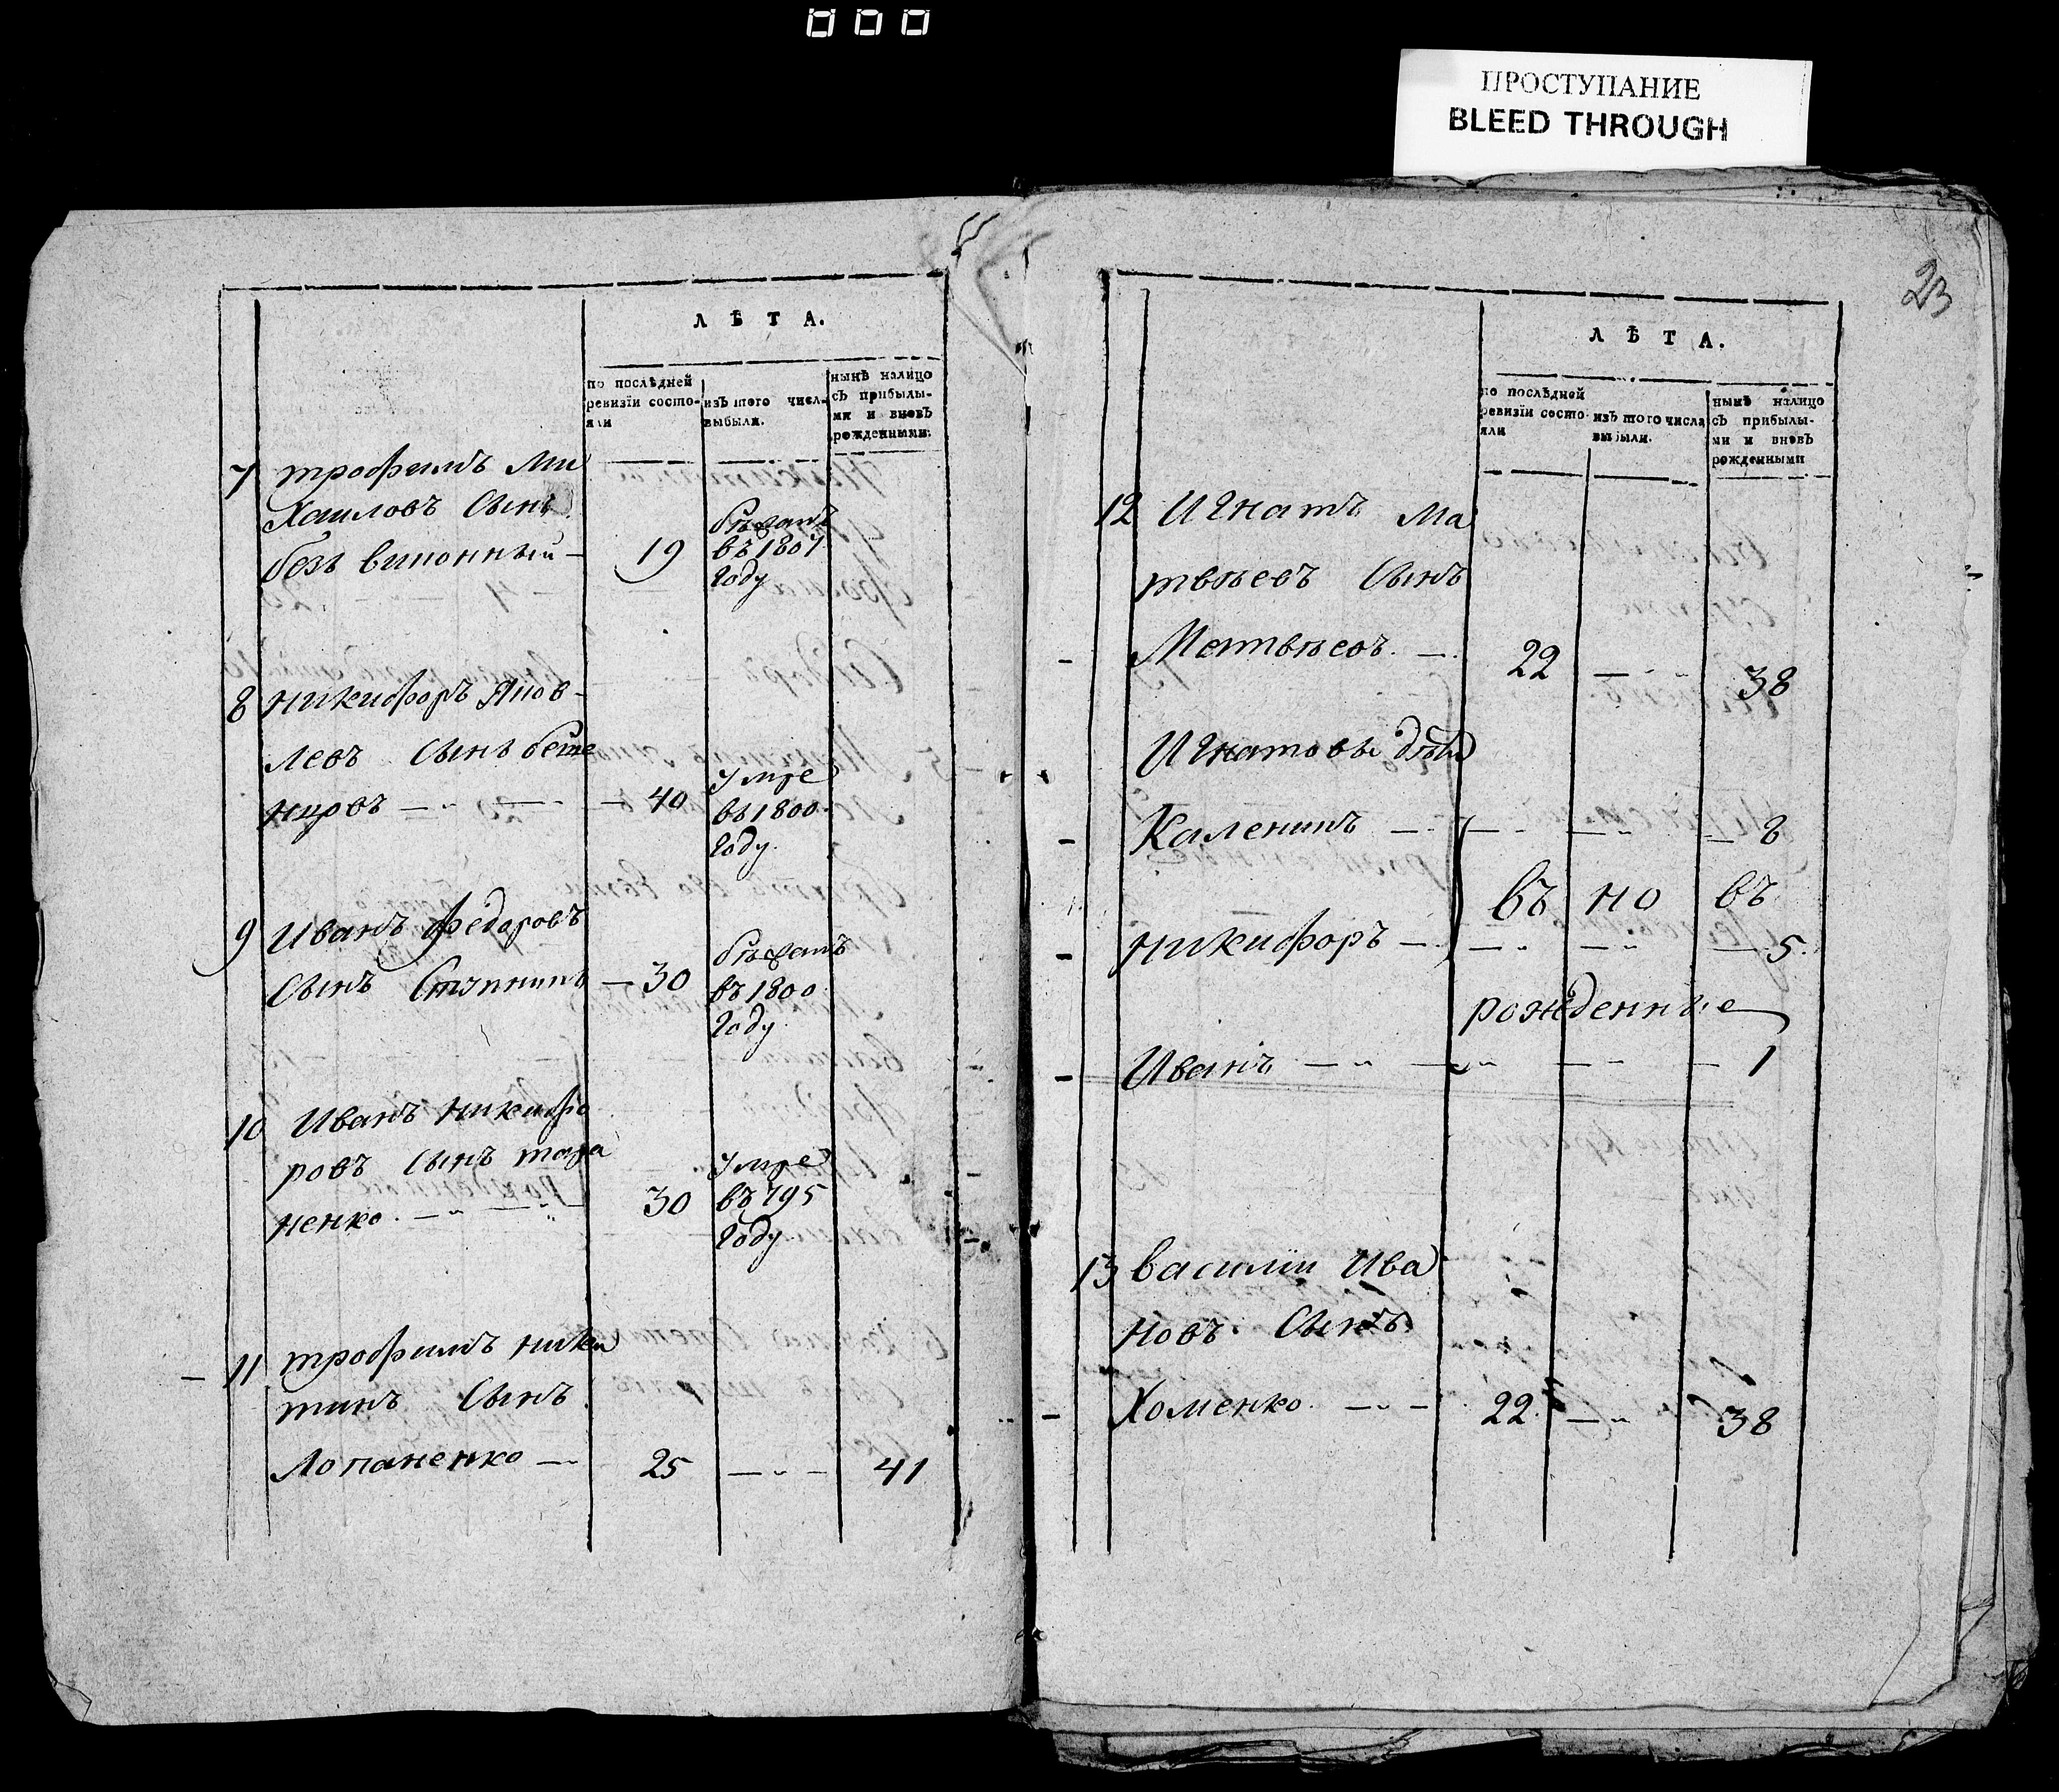 ПРОСТУПАНИЕ
BLEED THROUGH
ЛѢТА.
по послѣдней ревизїи состояли
изъ того числа выбыли.
нынѣ налицо съ прибылыми и вновь рожденными.
7 трофимъ Ми
хаиловъ Сынъ
безъ винонный — 19 бѣжалъ въ 1801 году
8 никифоръ
левъ Сынъ
нировъ — 40 умре въ 1800 году
9 Иванъ федоровъ
Сынъ — 30 бѣжалъ въ 1800 году
10 Иванъ никифо
ровъ Сынъ тара
ненко — 30 умре въ 795 году
11 трофимъ ники
тинъ Сынъ
Лопаненко — 25 — 41
23
ЛѢТА.
по послѣдней ревизїи состояли
изъ того числа выбыли.
нынѣ налицо съ прибылыми и вновь рожденными
12 Игнатъ Ма
твѣевъ Сынъ
Матвѣевъ — 22 — 38
Игнатовы дѣти
Каленикъ — 8
въ но въ
никифоръ — 5
рожденные
Иванъ — 1
13 василїи Ива
новъ Сынъ
Хоменко — 22 — 38